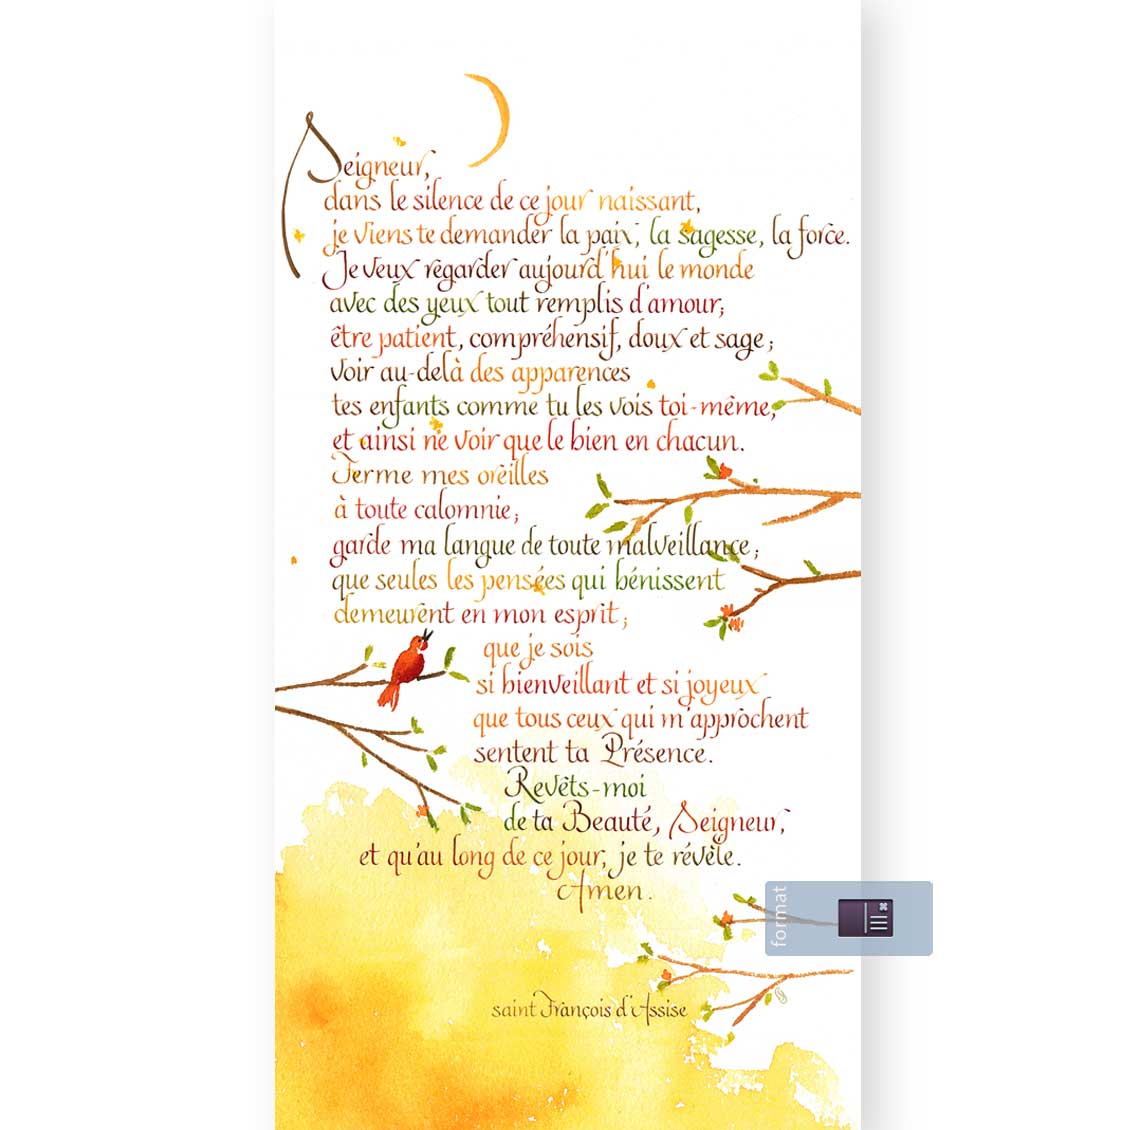 Seigneur,
dans le silence de ce jour naissant,
je viens te demander la paix, la sagesse, la force.
Je veux regarder aujourd'hui le monde
avec des yeux tout remplis d'amour;
être patient, compréhensif, doux et sage;
voir au-delà des apparences
tes enfants comme tu les vois toi-même,
et ainsi ne voir que le bien en chacun.
Ferme mes oreilles
à toute calomnie;
garde ma langue de toute malveillance;
que seules les pensées qui bénissent
demeurent en mon esprit;
que je sois
si bienveillant et si joyeux
que tous ceux qui m'approchent
sentent ta Présence.
Revêts-moi
de ta Beauté, Seigneur,
et qu'au long de ce jour, je te révèle.
Amen.
format
saint François d'Assise